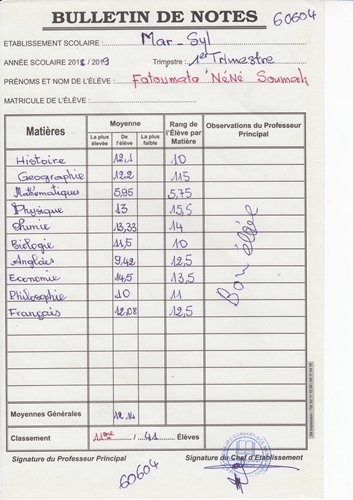 BULLETIN DE NOTES
60604
ETABLISSEMENT SCOLAIRE : Mar_Syl
ANNÉE SCOLAIRE 2018 / 2019 Trimestre : 1er Trimestre
PRÉNOMS ET NOM DE L'ÉLÈVE : Fatoumata NéNé Soumah
MATRICULE DE L'ÉLÈVE :
Matières Moyenne Rang de l'Élève par Matière Observations du Professeur Principal
La plus élevée De l'élève La plus faible
Histoire 12,1 10
Geographie 12.2 115
Mathématiques 5,95 5,75
Physique 13 15,5
Chimie 13,33 14
Biologie 11,5 10
Anglais 9,42 12,5
Economie 14,5 13,5
Philosophie 10 11
Français 12,08 12,5
Bon élève
Moyennes Générales 12,14
Classement 11ème / 41 Élèves
Signature du Professeur Principal Signature du Chef d'Etablissement
60604